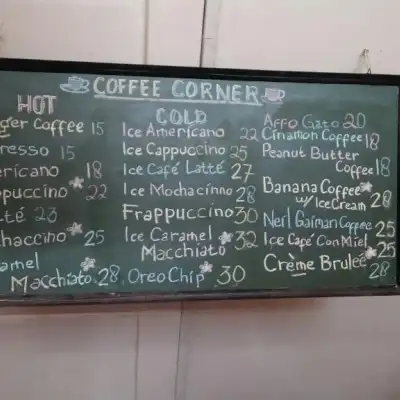 COFFEE CORNER
HOT
ger Coffee 15
resso 15
ericano 18
ppuccino 22
té 23
haccino 25
amel
Macchiato 28
COLD
Ice Americano 22
Ice Cappuccino 25
Ice Café Latté 27
Ice Mochacinno 28
Frappuccino 30
Ice Caramel 32
Macchiato
Oreo Chip 30
Affo Gato 20
Cinamon Coffee 18
Peanut Butter
Coffee 18
Banana Coffee
w/ Ice Cream 28
Neil Gaiman Coffee 25
Ice Café Con Miel 25
Crème Brulee 28